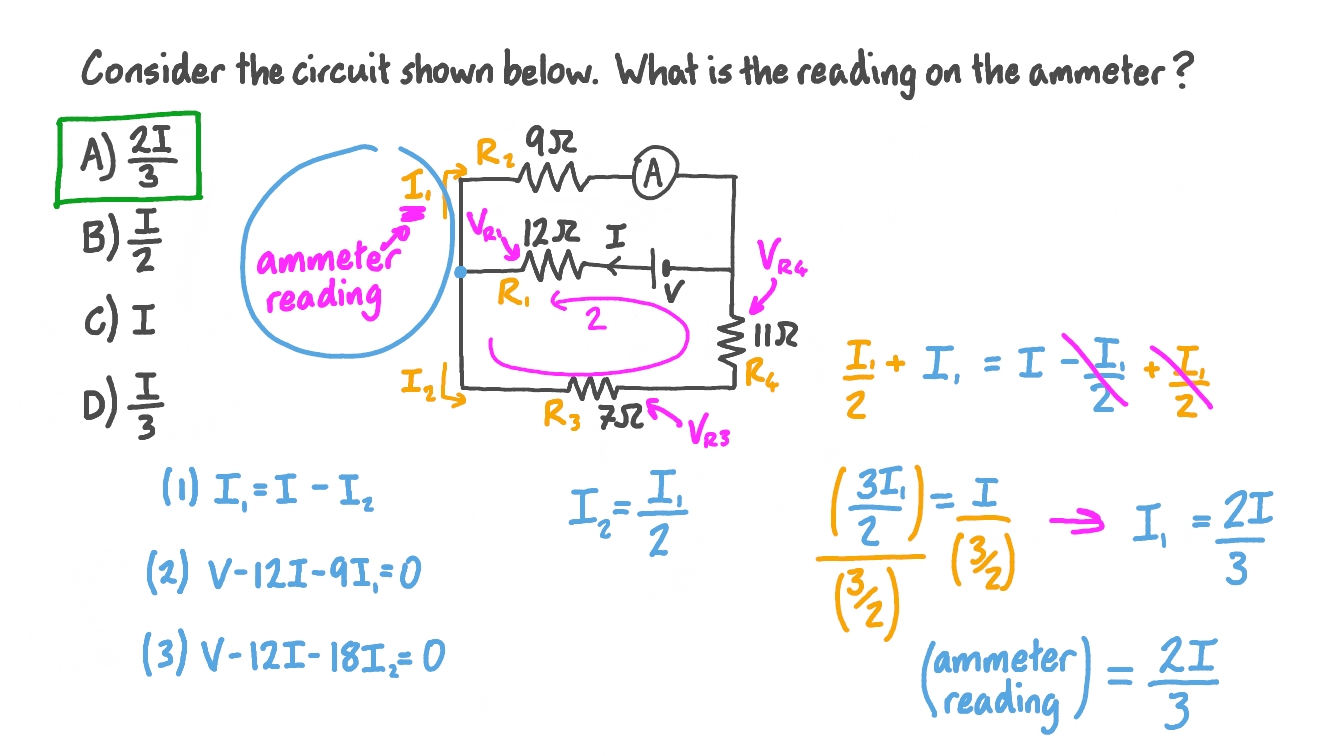 Consider the circuit shown below. What is the reading on the ammeter?
A) 2I/3
B) I/2
C) I
D) I/3
R₂ 9Ω
A
I₁
ammeter
reading
V_R₁ 12Ω I
R₁ V
V_R4
2
11Ω
R₄
I₂
R₃ 7Ω
V_R3
(1) I₁ = I - I₂
(2) V - 12I - 9I₁ = 0
(3) V - 12I - 18I₂ = 0
I₂ = I₁/2
I₁/2 + I₁ = I - I₁/2 + I₁/2
(3I₁/2)/(3/2) = I/(3/2) → I₁ = 2I/3
(ammeter reading) = 2I/3